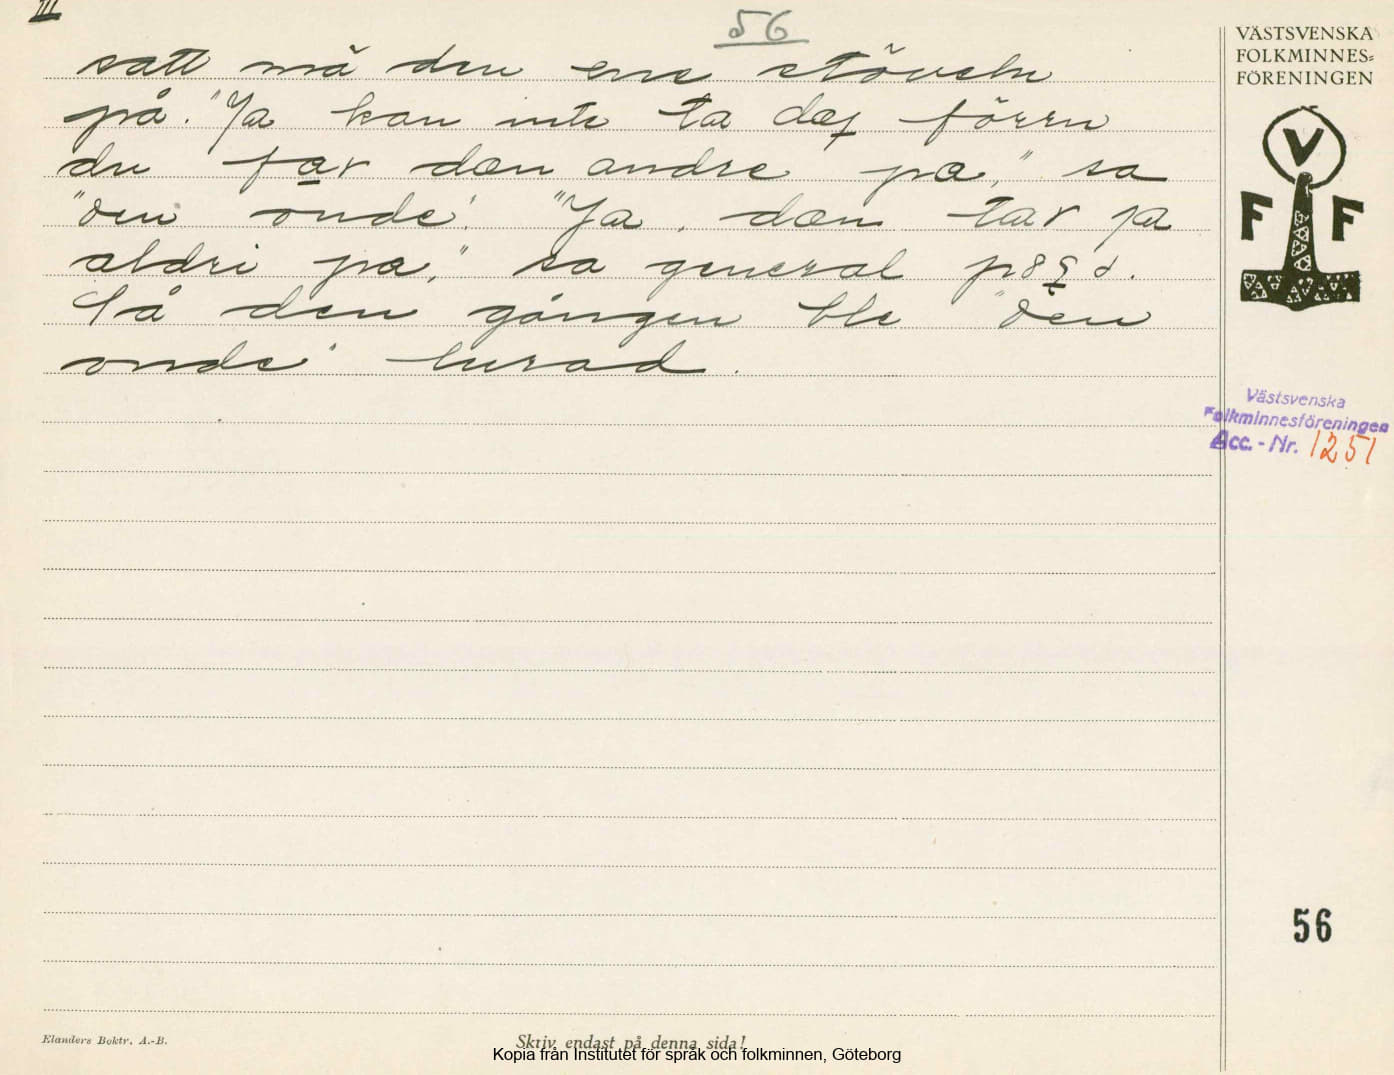 III
56
satt må den ene stöveln
på. "Ja kan inte ta dæj förrn
du får dæn andre pæ," sa
"den onde". "Ja, dæn tar ja
aldri pæ," sa general
Så den gången ble "den
onde" lurad.
VÄSTSVENSKA
FOLKMINNES=
FÖRENINGEN
V
F F
Västsvenska
Folkminnesföreningen
Acc. - Nr. 1251
56
Elanders Boktr. A.-B.
Skriv endast på denna sida!
Kopia från Institutet för språk och folkminnen, Göteborg